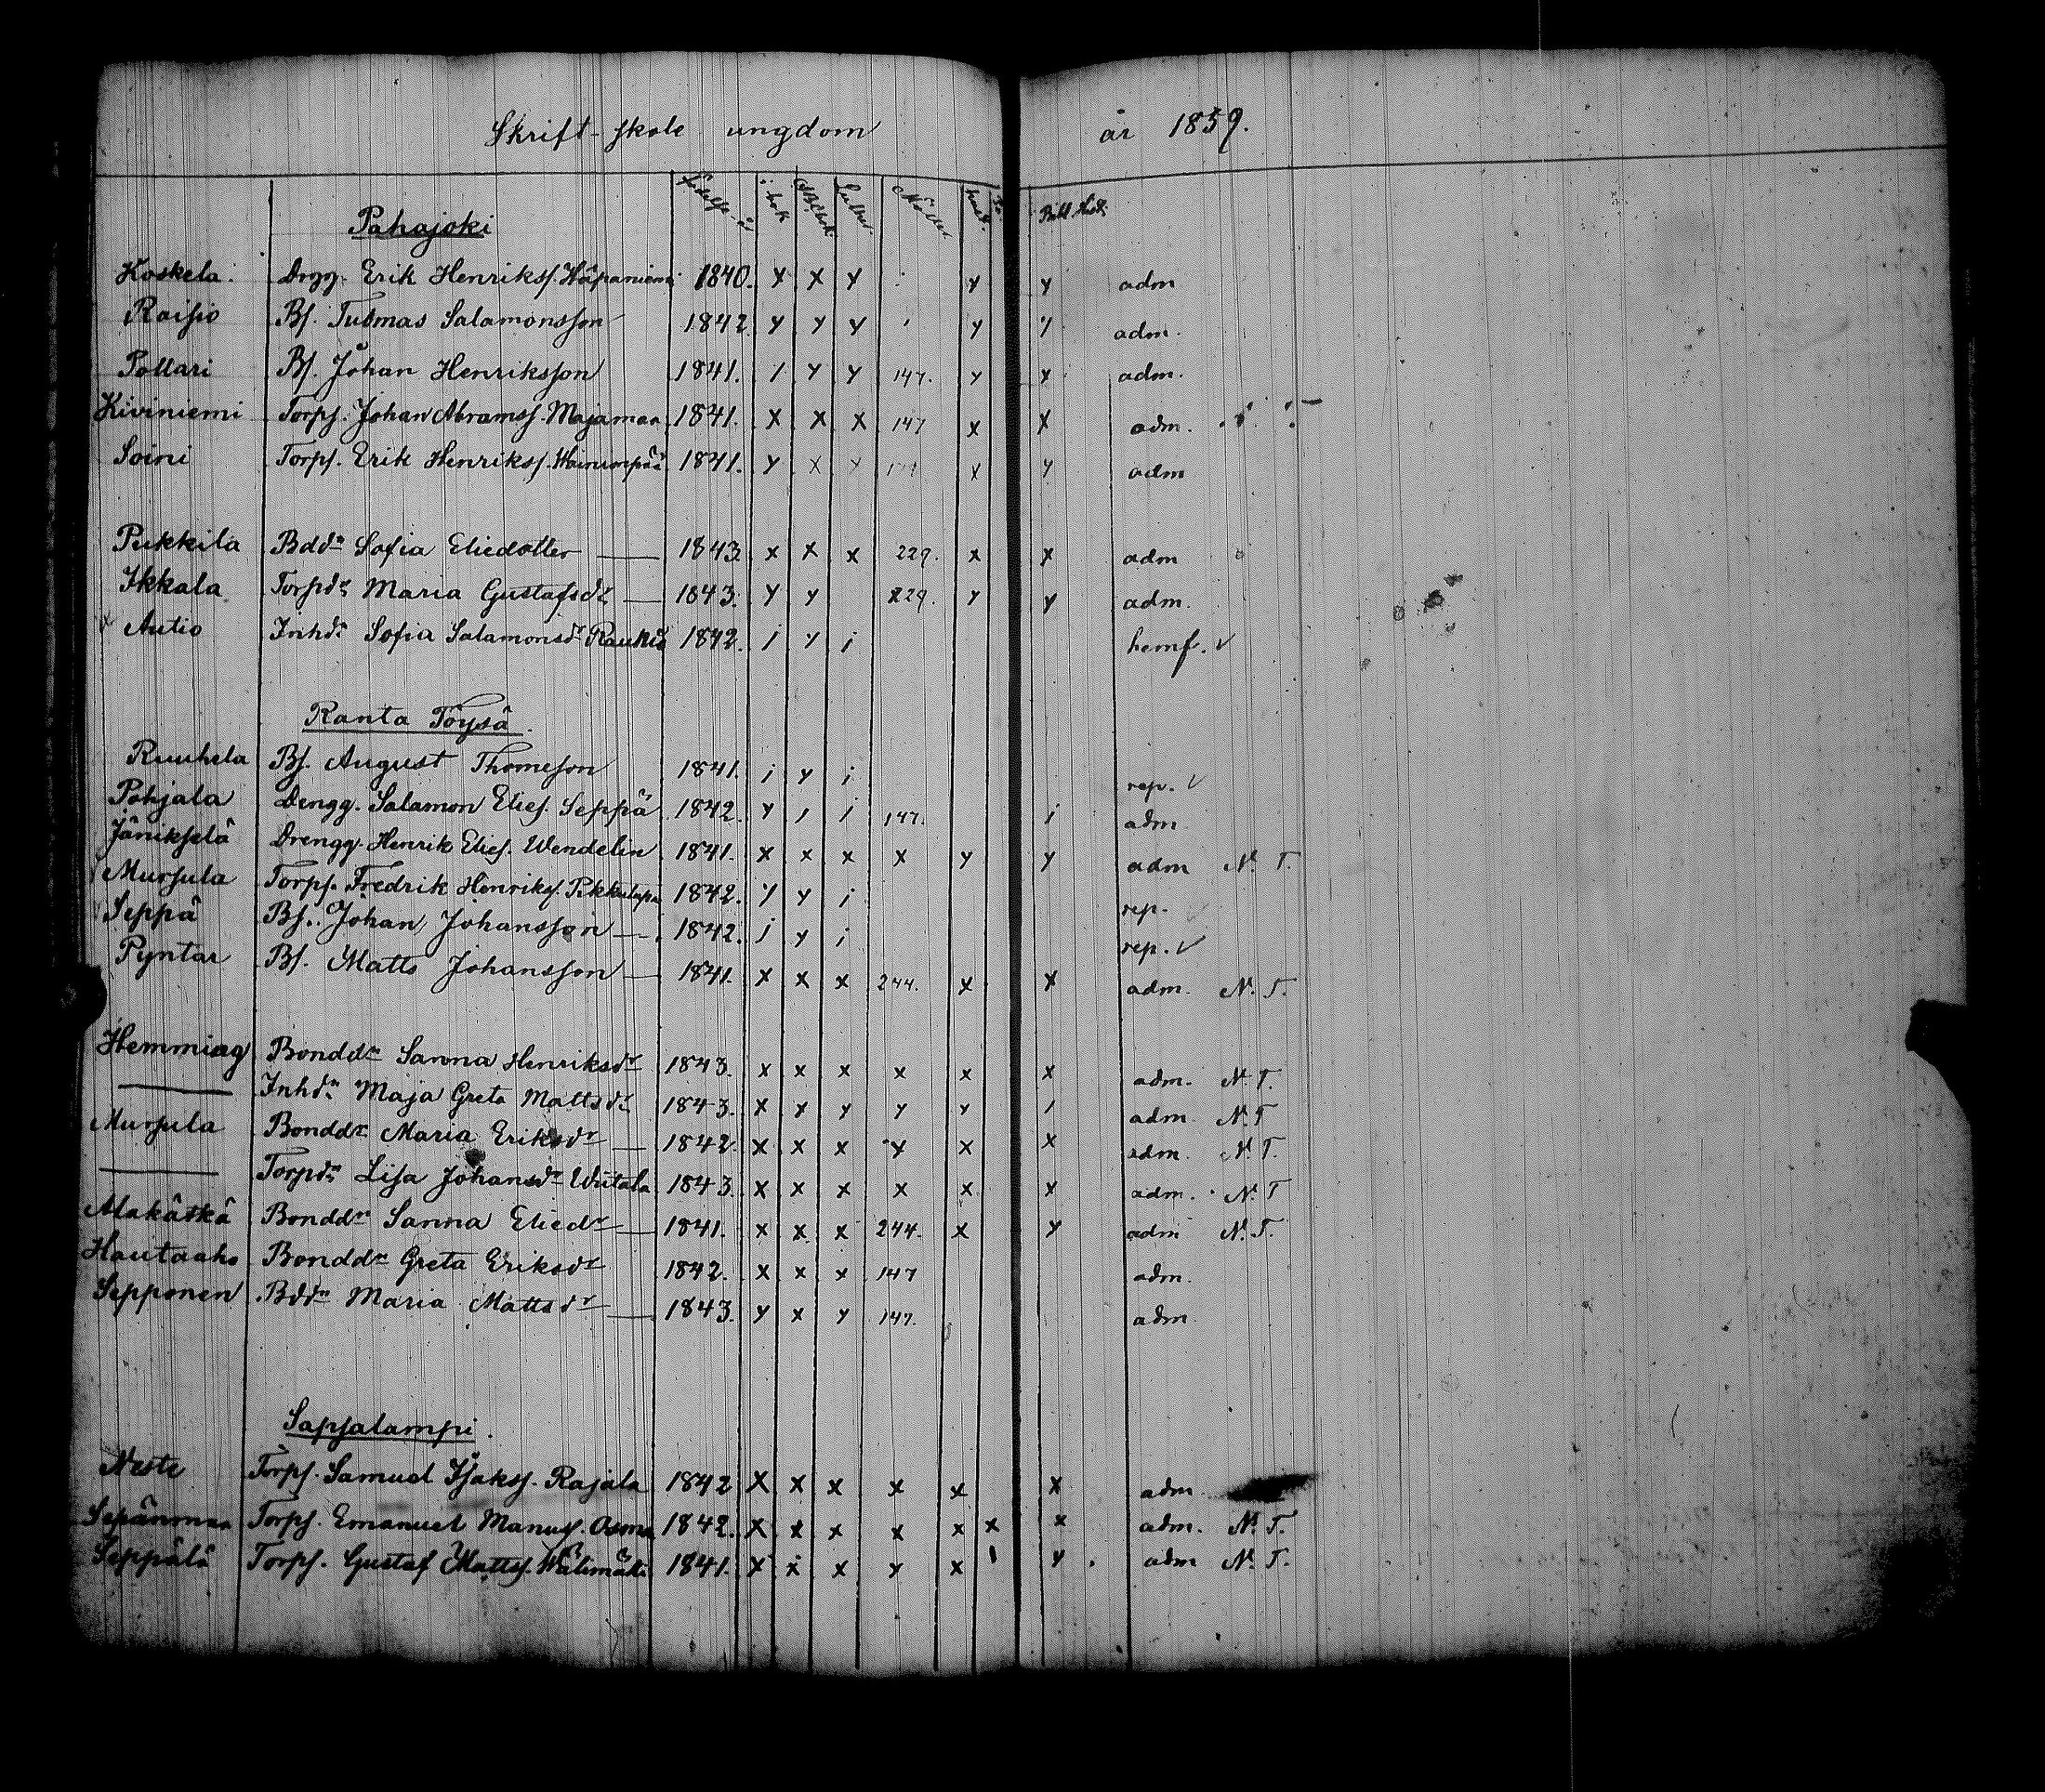 Skrift-skole ungdom år 1859.
födelse-år i bok Abcbok Luther. Möller hust. Bibl. Hist.
Pahajoki
Koskela. Drgg. Erik Henrikss. 1840. x x y y y adm
Raisio Bs. Tuomas Salamonsson 1842 y y y y y adm.
Pollari Bs. Johan Henriksson 1841. / y y 147. y x adm.
Kiviniemi Torps. Johan Abramss. Majamaa 1841. x x x 147 x x adm.
Soini Torps. Erik Henrikss. 1841. y x x x y adm
Pukkila Bddr Sofia Eliedotter — 1843 x x x 229. x x adm
Ikkala Torpdr Maria Gustafsdr — 1843. y y 229. y y adm.
x Autio Inhdr Sofia Salamonsdr 1842. i y i hemf. v
Ranta Töysä.
Ruuhela Bs. August Thomeson 1841. i y i rep. v
Pohjala Drengg. Salamon Elies. Seppä 1842. y / / 147. i adm
Jänikselä Drengg. Henrik Elies. Wendelin 1841. x x x x y y adm N. T.
Mursula Torps. Fredrik Henrikss. 1842. y y i rep.
Seppä Bs. Johan Johansson — 1842. i y i rep. v
Pyntar Bs. Matts Johansson — 1841. x x x 244. x x adm. N. T.
Hemming Bonddr Sanna Henriksdr 1843. x x x x x x adm. N. T.
— Inhdr Maja Greta Mattsdr 1843. x y y y y / adm N. T
Mursula Bonddr Maria Eriksdr — 1842. x x x x x x adm. N. T.
— Torpdr Lisa Johansdr Wiitala 1843 x x x x x x adm. N. T
Alakätkä Bonddr Sanna Eliedr — 1841. x x x 244. x y adm N. T.
Hautaaho Bonddr Greta Eriksdr 1842. x x x 147 adm.
Sepponen Bddr Maria Mattsdr — 1843. y x y 147. adm
Sapsalampi.
Neste Torps. Samuel Isakss. Rajala 1842 x x x x x x adm
Sepänmaa Torps. Emanuel Manuss. Osma 1842. x x x x x x x adm. N. T.
Seppälä Torps. Gustaf Mattss. Wälimäki 1841. x x x y x / y. adm N. T.